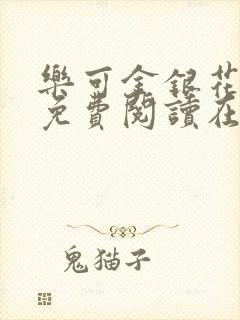 樂可金銀花
免費閱讀在
鬼猫子